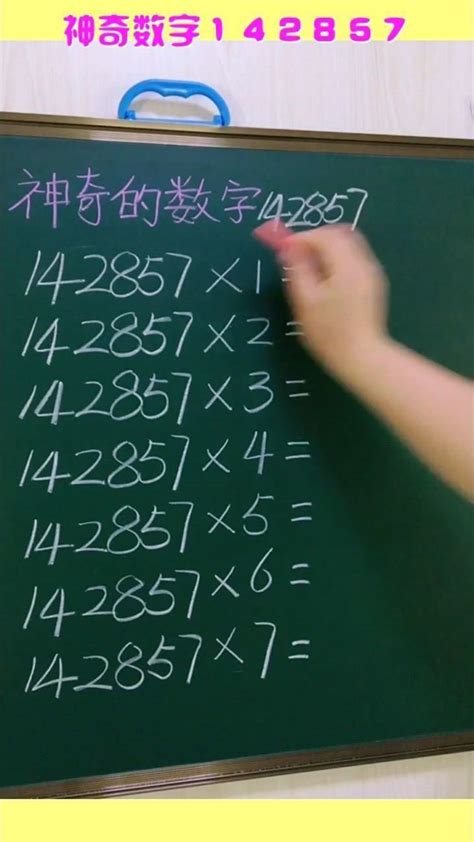 神奇数字142857
神奇的数字142857
142857×1=
142857×2=
142857×3=
142857×4=
142857×5=
142857×6=
142857×7=